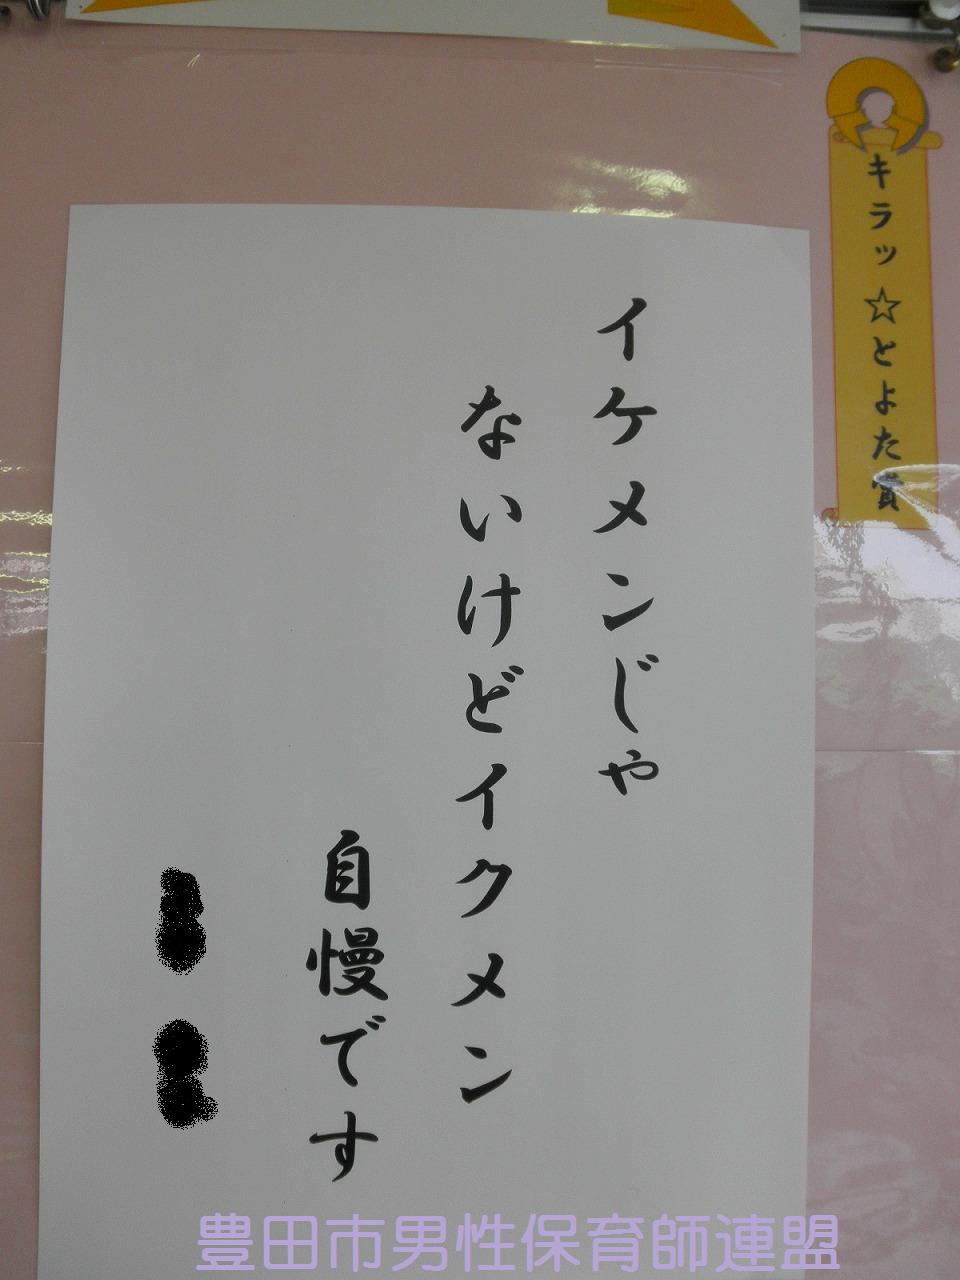 キラッ☆とよた賞
イケメンじゃ
ないけどイクメン
自慢です
豊田市男性保育師連盟